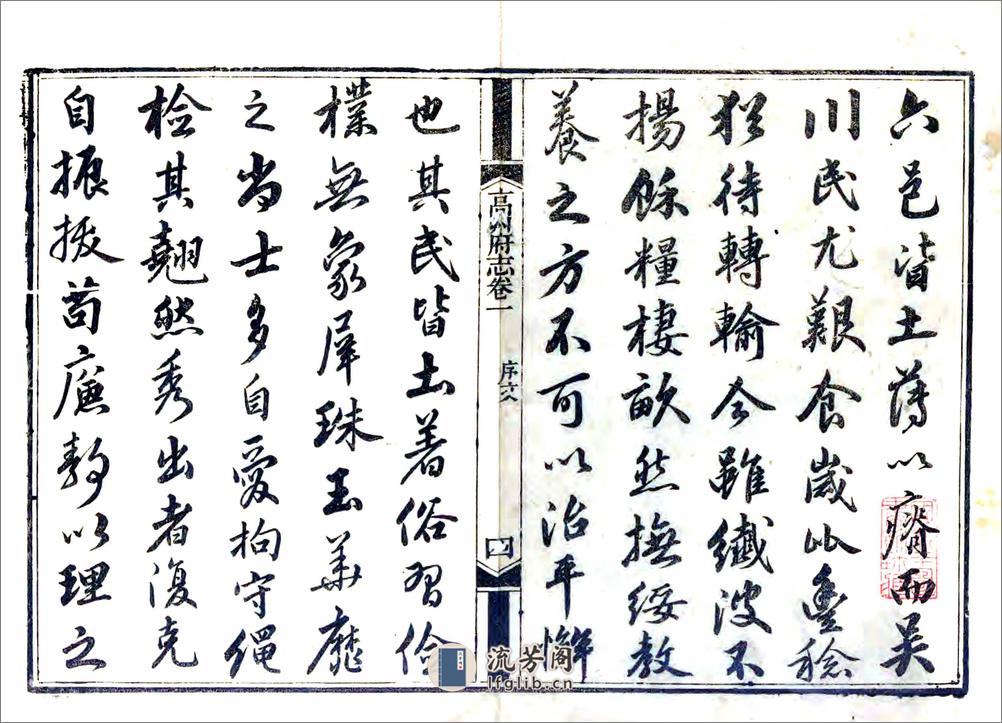 六邑皆土薄以瘠而吴
川民尤艱食歲比豊稔
猶待轉輸今雖纖波不
揚餘糧棲畝然撫綏教
養之方不可以治平懈
高州府志卷一
序文
四
也其民皆土著俗習儉
樸無象犀珠玉華靡
之尚士多自愛拘守繩
檢其翹然秀出者復克
自振拔苟廉静以理之
流芳阁
lfglib.cn